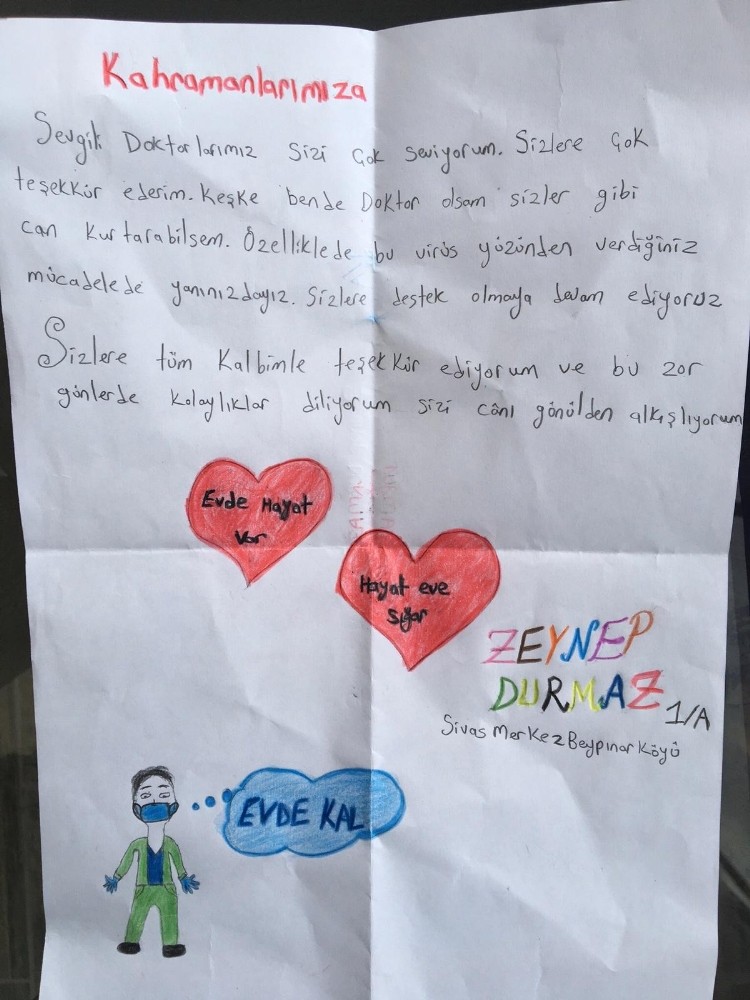 Kahramanlarımıza
Sevgili Doktorlarımız sizi çok seviyorum. Sizlere çok
teşekkür ederim. Keşke bende Doktor olsam sizler gibi
can kurtarabilsem. Özelliklede bu virüs yüzünden verdiğiniz
mücadelede yanınızdayız. Sizlere destek olmaya devam ediyoruz
Sizlere tüm Kalbimle teşekkür ediyorum ve bu zor
günlerde kolaylıklar diliyorum sizi cânı gönülden alkışlıyorum
Evde Hayat
Var
Hayat eve
sığar
ZEYNEP
DURMAZ 1/A
Sivas Merkez Beypınar Köyü
EVDE KAL